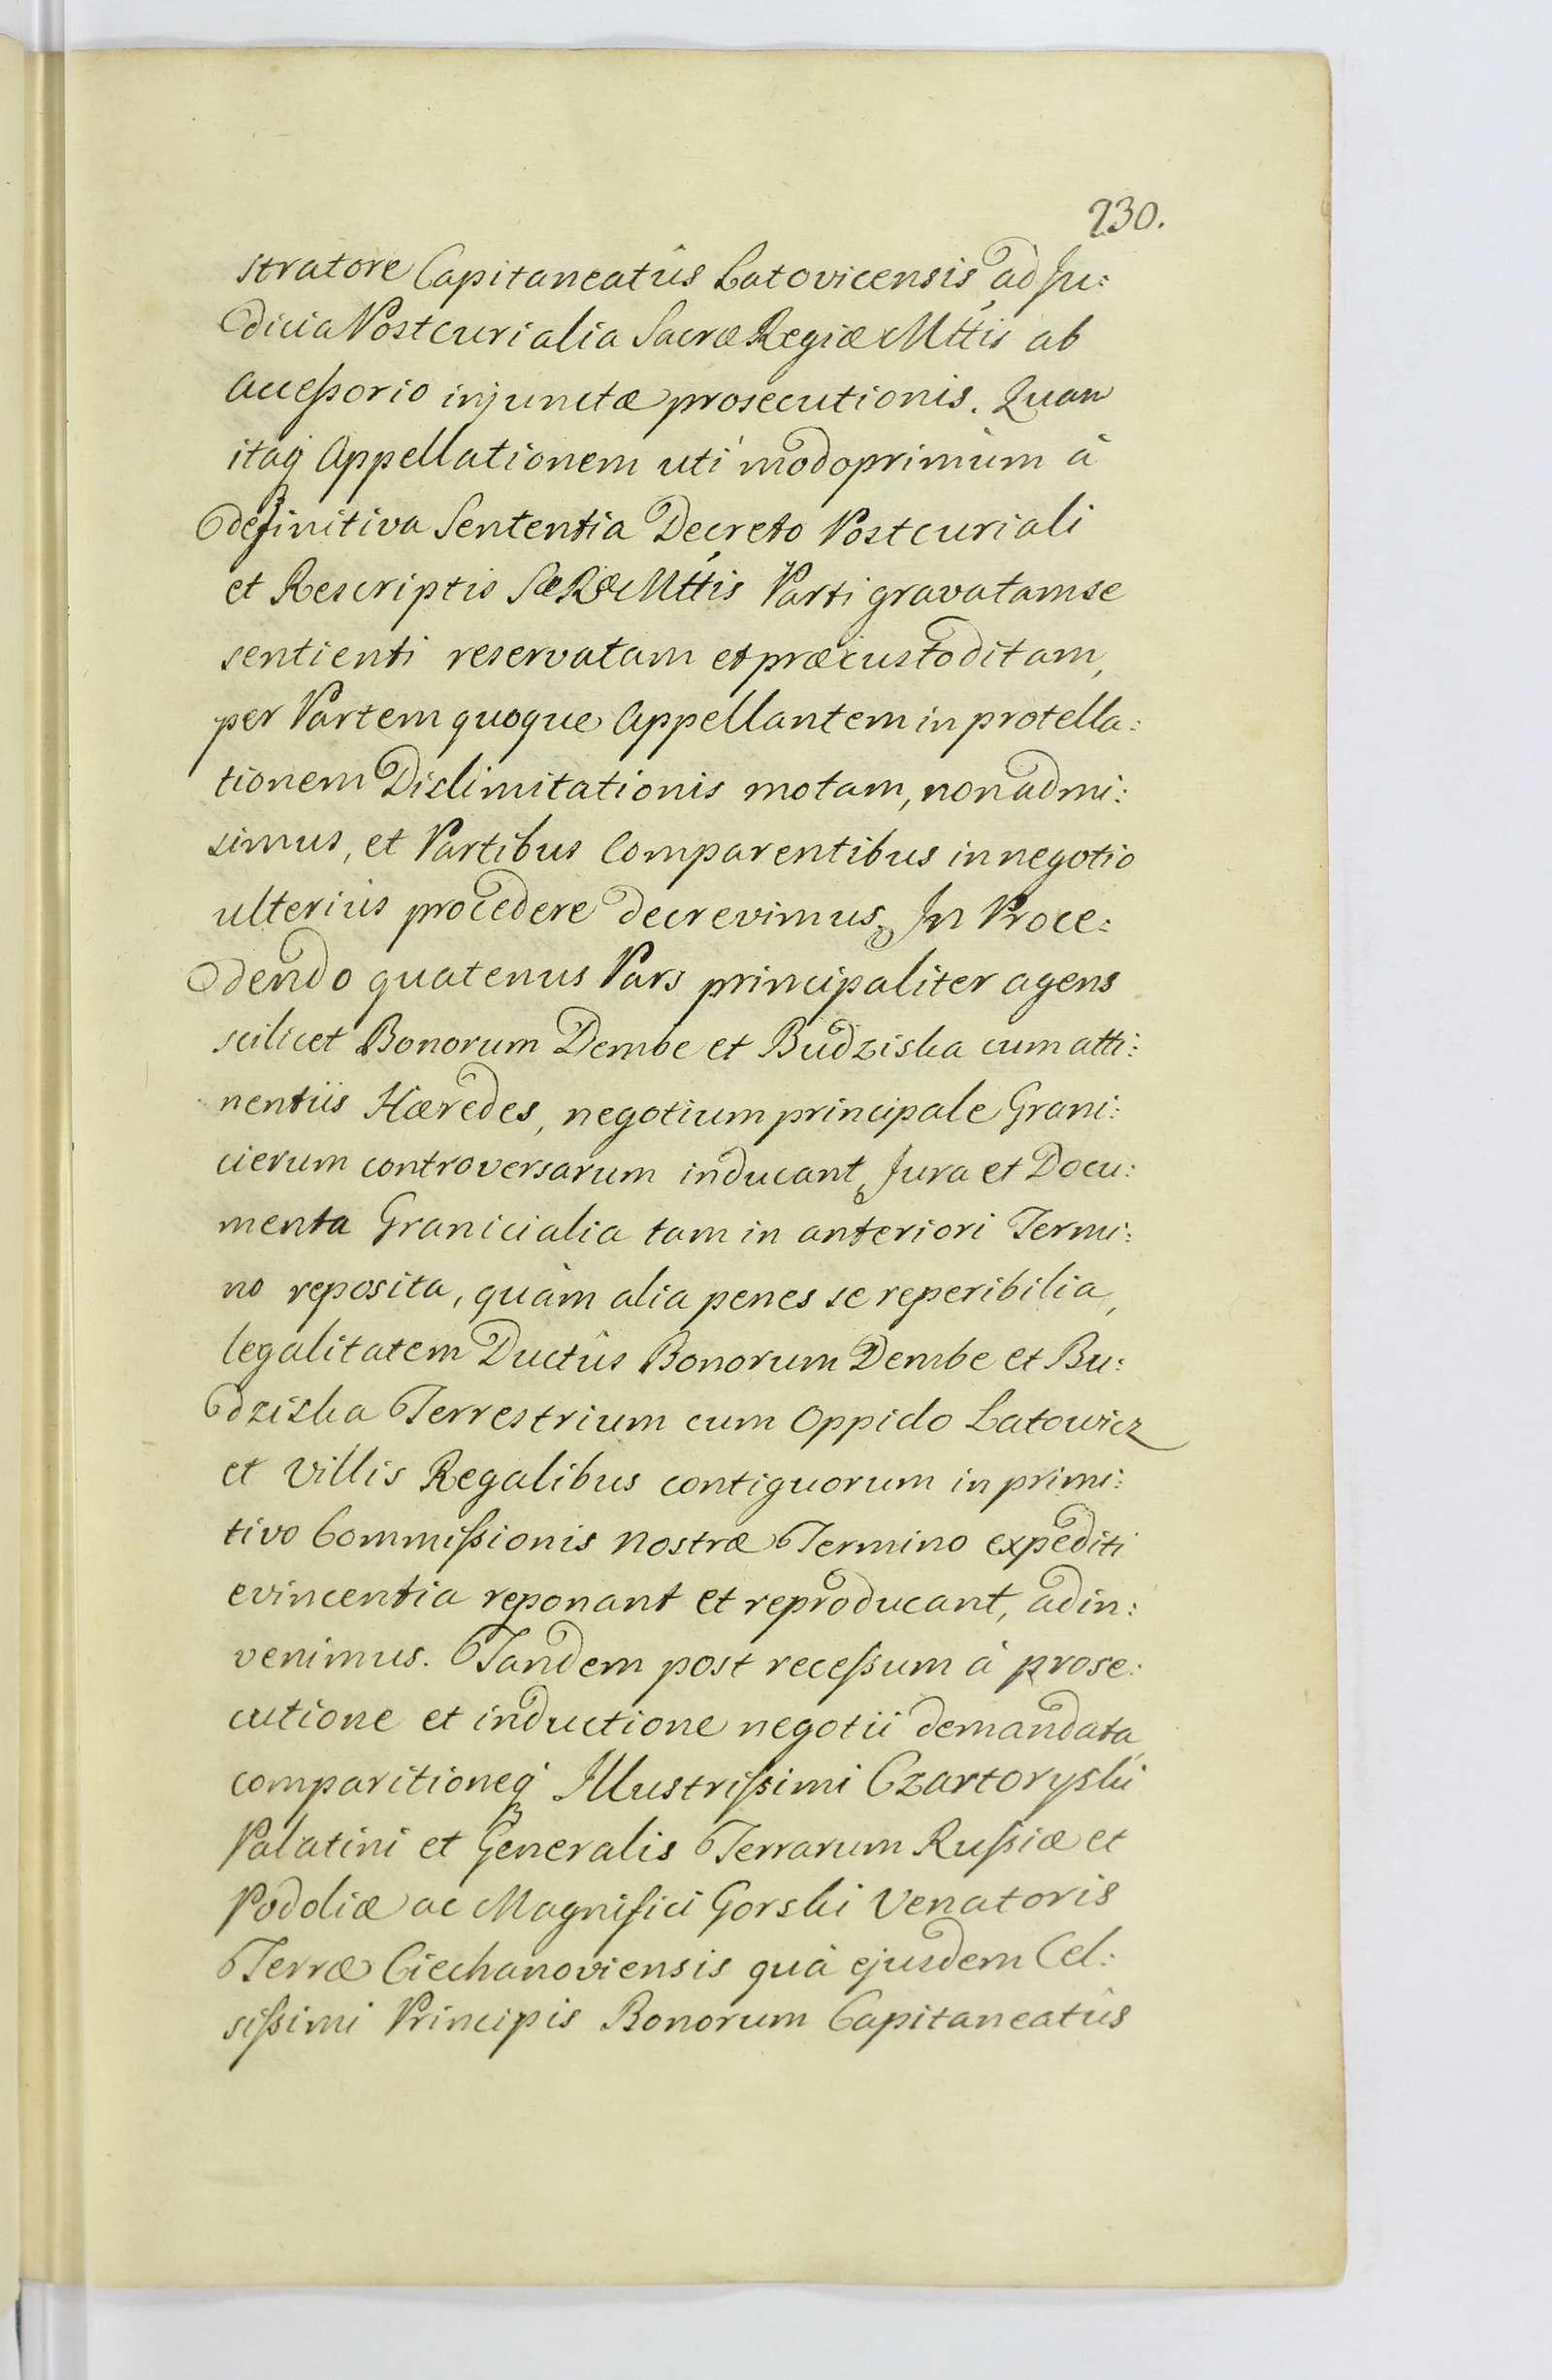 230.
stratore Capitaneatûs Latovicensis, ad Ju:
dicia Postcurialia Sacræ Regiæ Mttis ab
accessorio injunctæ prosecutionis. Quam
itaq Appellationem uti modoprimùm à
definitiva Sententia Decreto Postcuriali
et Rescriptis Sæ Ræ Mttis Parti gravatam se
sentienti reservatam et præcustoditam,
per Partem quoque Appellantem in protella:
tionem Dislimitationis motam, non admi:
simus, et Partibus Comparentibus in negotio
ulteriùs procedere decrevimus. In Proce:
dendo quatenus Pars principaliter agens
scilicet Bonorum Dembe et Budziska cum atti:
nentiis Hæredes, negotium principale Grani:
cierum controversarum inducant, Jura et Docu:
menta Granicialia tam in anteriori Termi:
no reposita, quàm alia penes se reperibilia,
legalitatem Ductûs Bonorum Dembe et Bu:
dziska Terrestrium cum Oppido Latowicz
et Villis Regalibus contiguorum in primi:
tivo Commissionis nostræ Termino expediti
evincentia reponant et reproducant, adin:
venimus. Tandem post recessum à prose:
cutione et inductione negotii demandata,
comparitioneq Illustrissimi Czartoryski
Palatini et Generalis Terrarum Russiæ et
Podoliæ ac Magnifici Gorski Venatoris
Terræ Ciechanoviensis quà ejusdem Cel:
sissimi Principis Bonorum Capitaneatûs